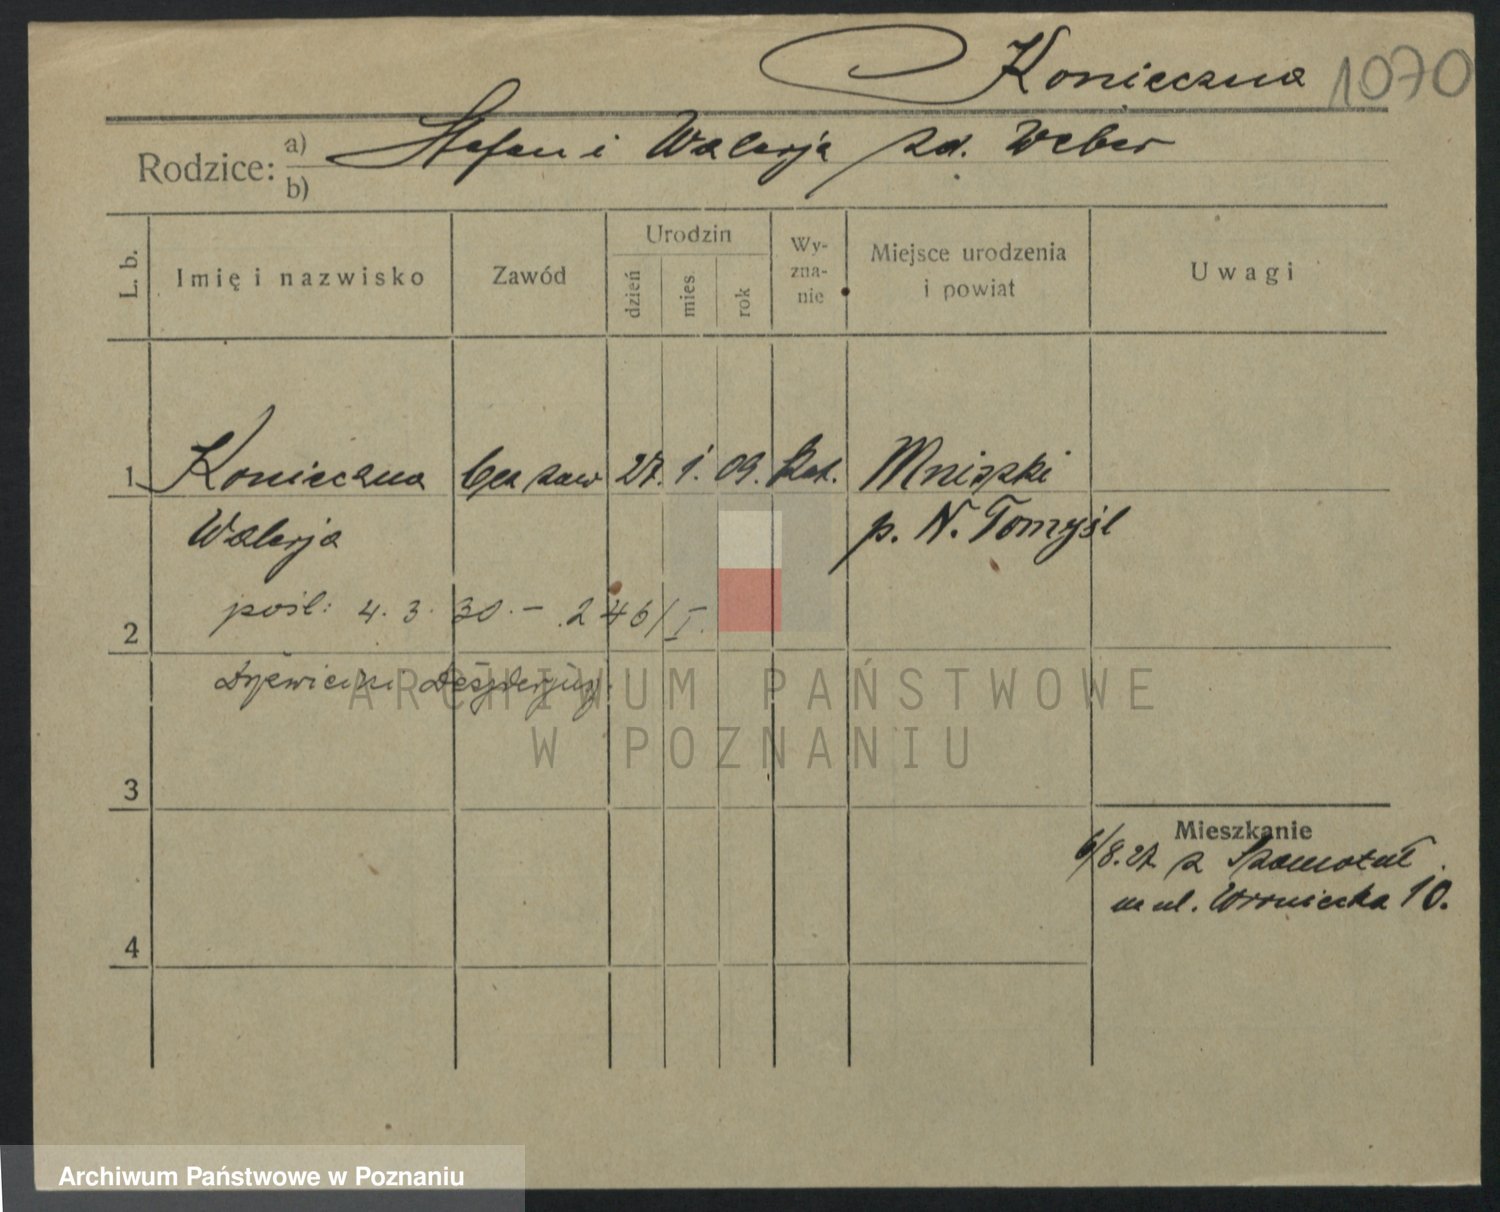 Konieczna 1070
Rodzice: a) Stefan i Walerja zd. Weber
b)
L. b.
Imię i nazwisko
Zawód
Urodzin
dzień
mies
rok
Wy-
zna-
nie
Miejsce urodzenia
i powiat
Uwagi
1 Konieczna bez zaw 27. 1. 09. kat. Mniszki
Walerja p. N. Tomyśl
pośl: 4. 3. 30. – 246/I.
2
3
Mieszkanie
6/8.27 z Szamotuł
na ul. Wroniecka 10.
4
ARCHIWUM PAŃSTWOWE
W POZNANIU
Archiwum Państwowe w Poznaniu